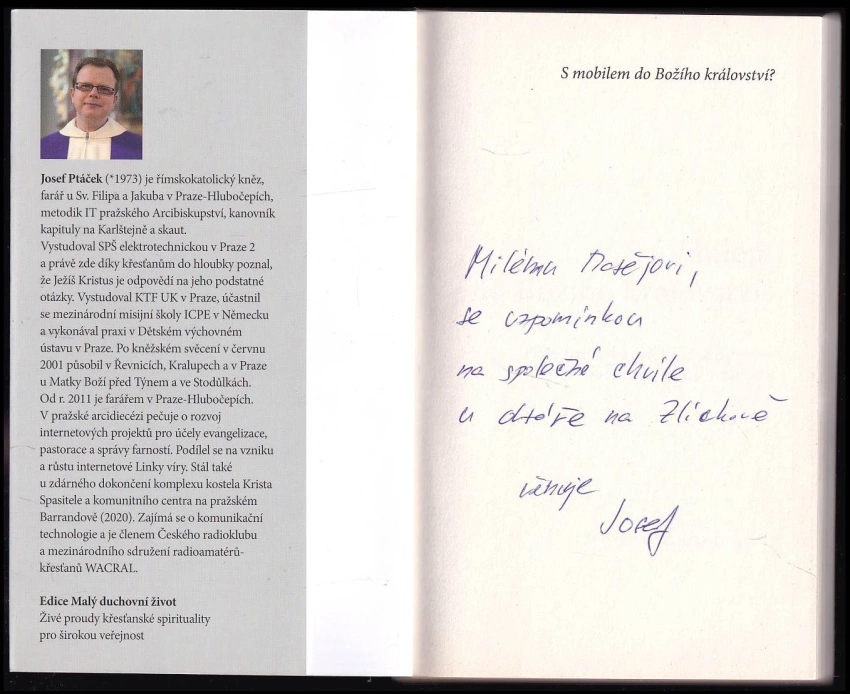 Josef Ptáček (*1973) je římskokatolický kněz,
farář u Sv. Filipa a Jakuba v Praze-Hlubočepích,
metodik IT pražského Arcibiskupství, kanovník
kapituly na Karlštejně a skaut.
Vystudoval SPŠ elektrotechnickou v Praze 2
a právě zde díky křesťanům do hloubky poznal,
že Ježíš Kristus je odpovědí na jeho podstatné
otázky. Vystudoval KTF UK v Praze, účastnil
se mezinárodní misijní školy ICPE v Německu
a vykonával praxi v Dětském výchovném
ústavu v Praze. Po kněžském svěcení v červnu
2001 působil v Řevnicích, Kralupech a v Praze
u Matky Boží před Týnem a ve Stodůlkách.
Od r. 2011 je farářem v Praze-Hlubočepích.
V pražské arcidiecézi pečuje o rozvoj
internetových projektů pro účely evangelizace,
pastorace a správy farností. Podílel se na vzniku
a růstu internetové Linky víry. Stál také
u zdárného dokončení komplexu kostela Krista
Spasitele a komunitního centra na pražském
Barrandově (2020). Zajímá se o komunikační
technologie a je členem Českého radioklubu
a mezinárodního sdružení radioamatérů-
křesťanů WACRAL.
Edice Malý duchovní život
Živé proudy křesťanské spirituality
pro širokou veřejnost
S mobilem do Božího království?
Milému
se vzpomínkou
na společné chvíle
u oltáře na Zlíchově
věnuje
Josef